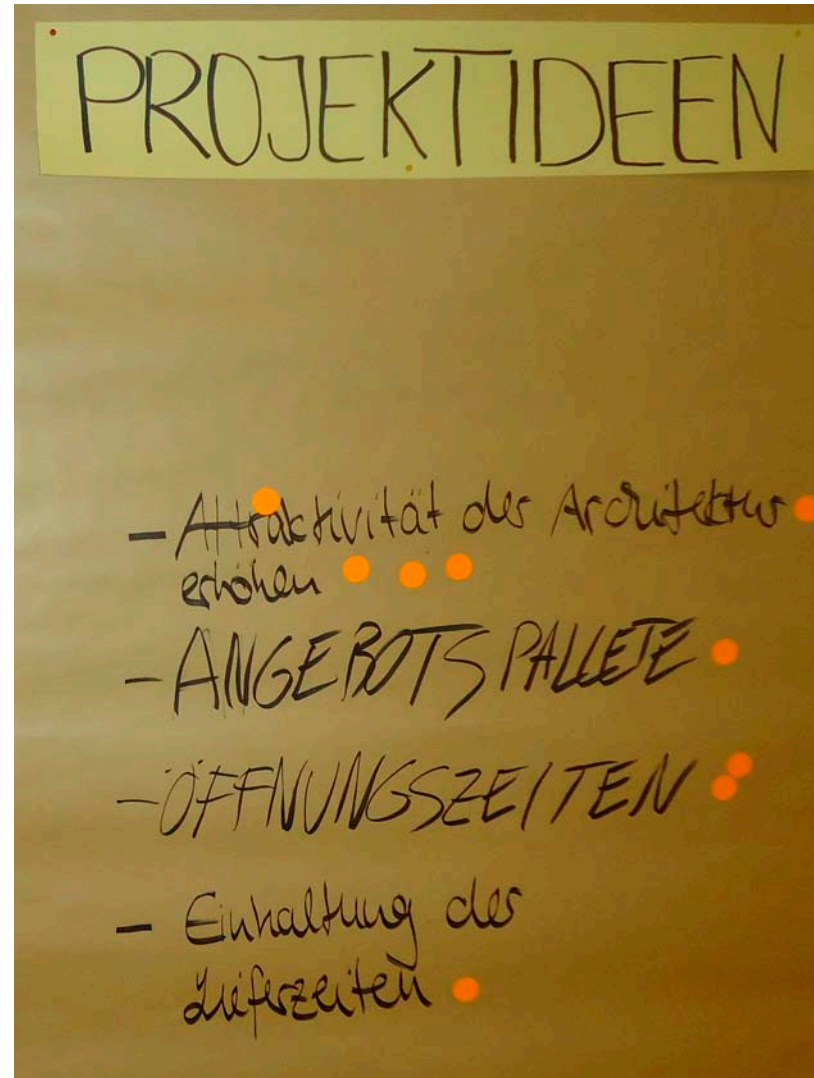 PROJEKTIDEEN
- Attraktivität der Architektur
erhöhen
- ANGEBOTSPALLETE
- ÖFFNUNGSZEITEN
- Einhaltung der
Lieferzeiten